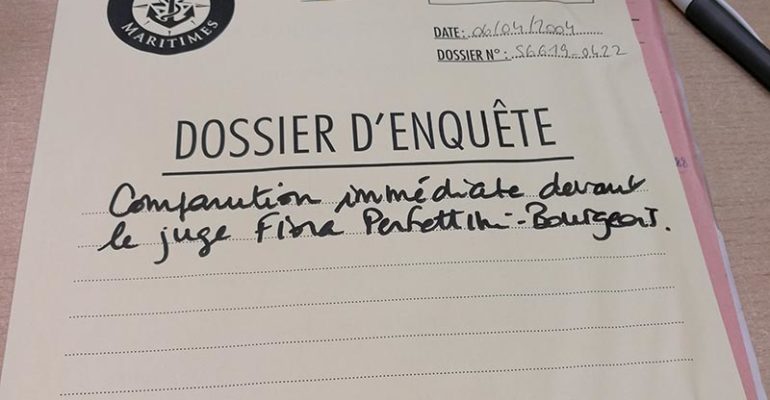 MARITIMES
DATE: 06/04/2004
DOSSIER N°: SGG19-0422
DOSSIER D'ENQUÊTE
Comparution immédiate devant
le juge Fiona Perfettini-Bourgeois.
88